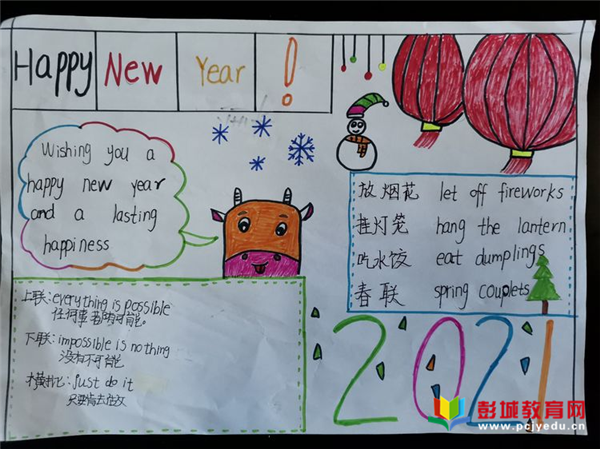 Happy New Year !
Wishing you a
happy new year
and a lasting
happiness
放烟花 let off fireworks
挂灯笼 hang the lantern
吃水饺 eat dumplings
春联 spring couplets
上联:everything is possible
任何事都有可能。
下联:impossible is nothing
没有不可能
横批:just do it
只要肯去做
2021
彭城教育网
www.pcjyedu.cn